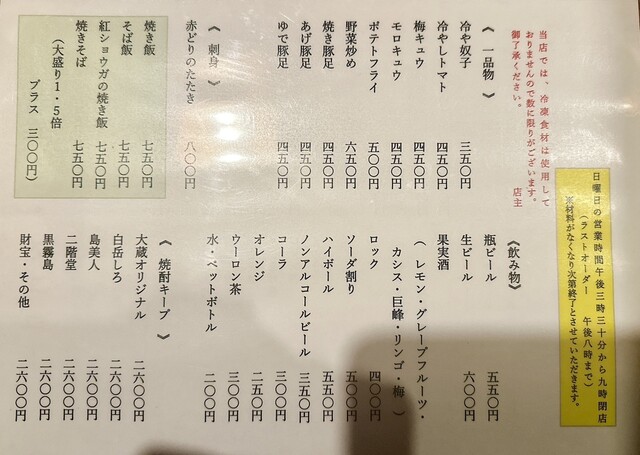 日曜日の営業時間午後三時三十分から九時閉店
(ラストオーダー 午後八時まで)
※材料がなくなり次第終了とさせていただきます。
当店では、冷凍食材は使用して
おりませんので数に限りがございます。
御了承ください。 店主
《 一品物 》
冷や奴子 三五〇円
冷やしトマト 四五〇円
梅キュウ 四五〇円
モロキュウ 四五〇円
ポテトフライ 五〇〇円
野菜炒め 六五〇円
焼き豚足 四五〇円
あげ豚足 四五〇円
ゆで豚足 四五〇円
《 刺身 》
赤どりのたたき 八〇〇円
焼き飯 七五〇円
そば飯 七五〇円
紅ショウガの焼き飯 七五〇円
焼きそば 七五〇円
(大盛り1・5倍
プラス 三〇〇円)
《飲み物》
瓶ビール 五五〇円
生ビール 六〇〇円
果実酒
( レモン・グレープフルーツ・
カシス・巨峰・リンゴ・梅 )
ロック 四〇〇円
ソーダ割り 五〇〇円
ハイボール 五五〇円
ノンアルコールビール 三五〇円
コーラ 三〇〇円
オレンジ 二五〇円
ウーロン茶 三〇〇円
水・ペットボトル 二〇〇円
《 焼酎キープ 》
大蔵オリジナル 二六〇〇円
白岳しろ 二六〇〇円
島美人 二六〇〇円
二階堂 二六〇〇円
黒霧島 二六〇〇円
財宝・その他 二六〇〇円